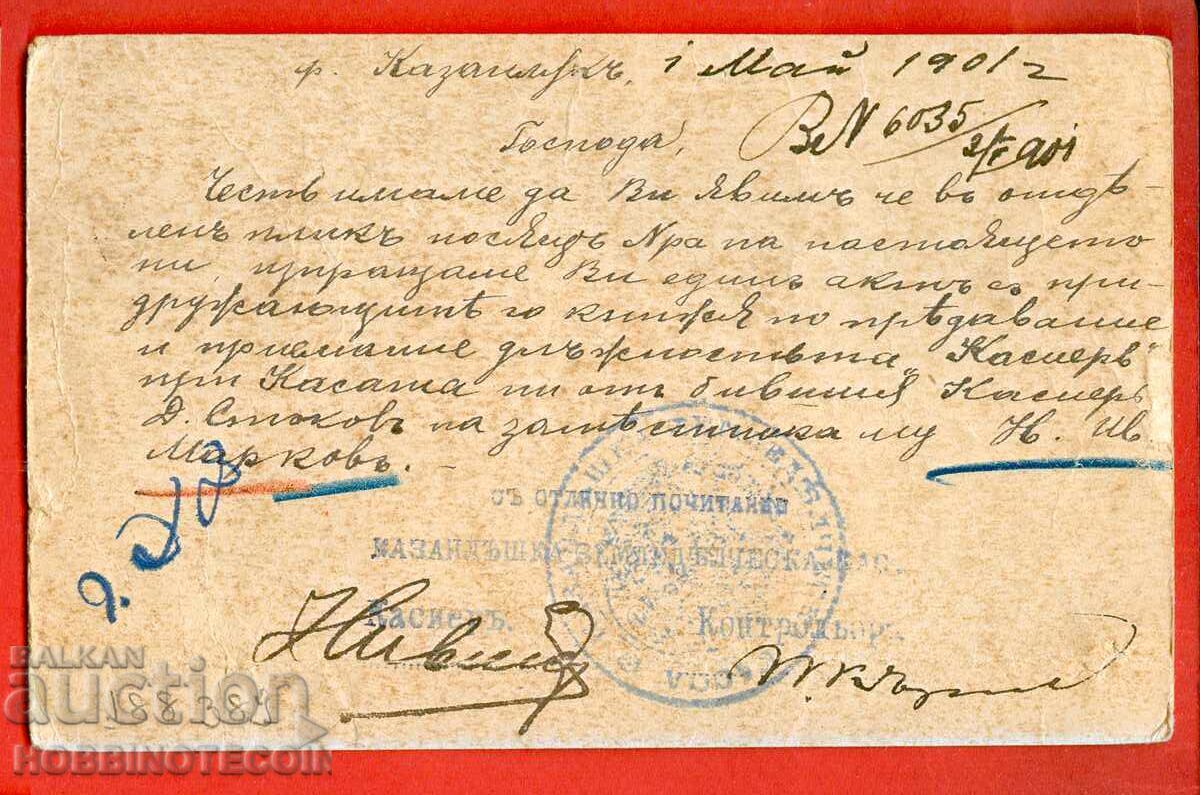 гр. Казанлѫкъ, 1 Май 1901 г
Вх N 6035
2/V 901
Господа,
Честь имаме да Ви явимъ че въ отдѣ-
ленъ пликъ подъ N-ра на настоящето
ни, изпращаме Ви единъ актъ съ при-
дружающитѣ го книжя по прѣдавание
и приемание длъжностьта "Касиеръ"
при Касата ни отъ бившия Касиеръ
Д. Стоковъ на замѣстника му Н. Ив
Марковъ. –
СЪ ОТЛИЧНО ПОЧИТАНИЕ
КАЗАНЛЪШКА ЗЕМЛЕДѢЛЧЕСКА КАС.
Касиеръ. Контрольоръ
BALKAN
auction
HOBBINOTECOIN